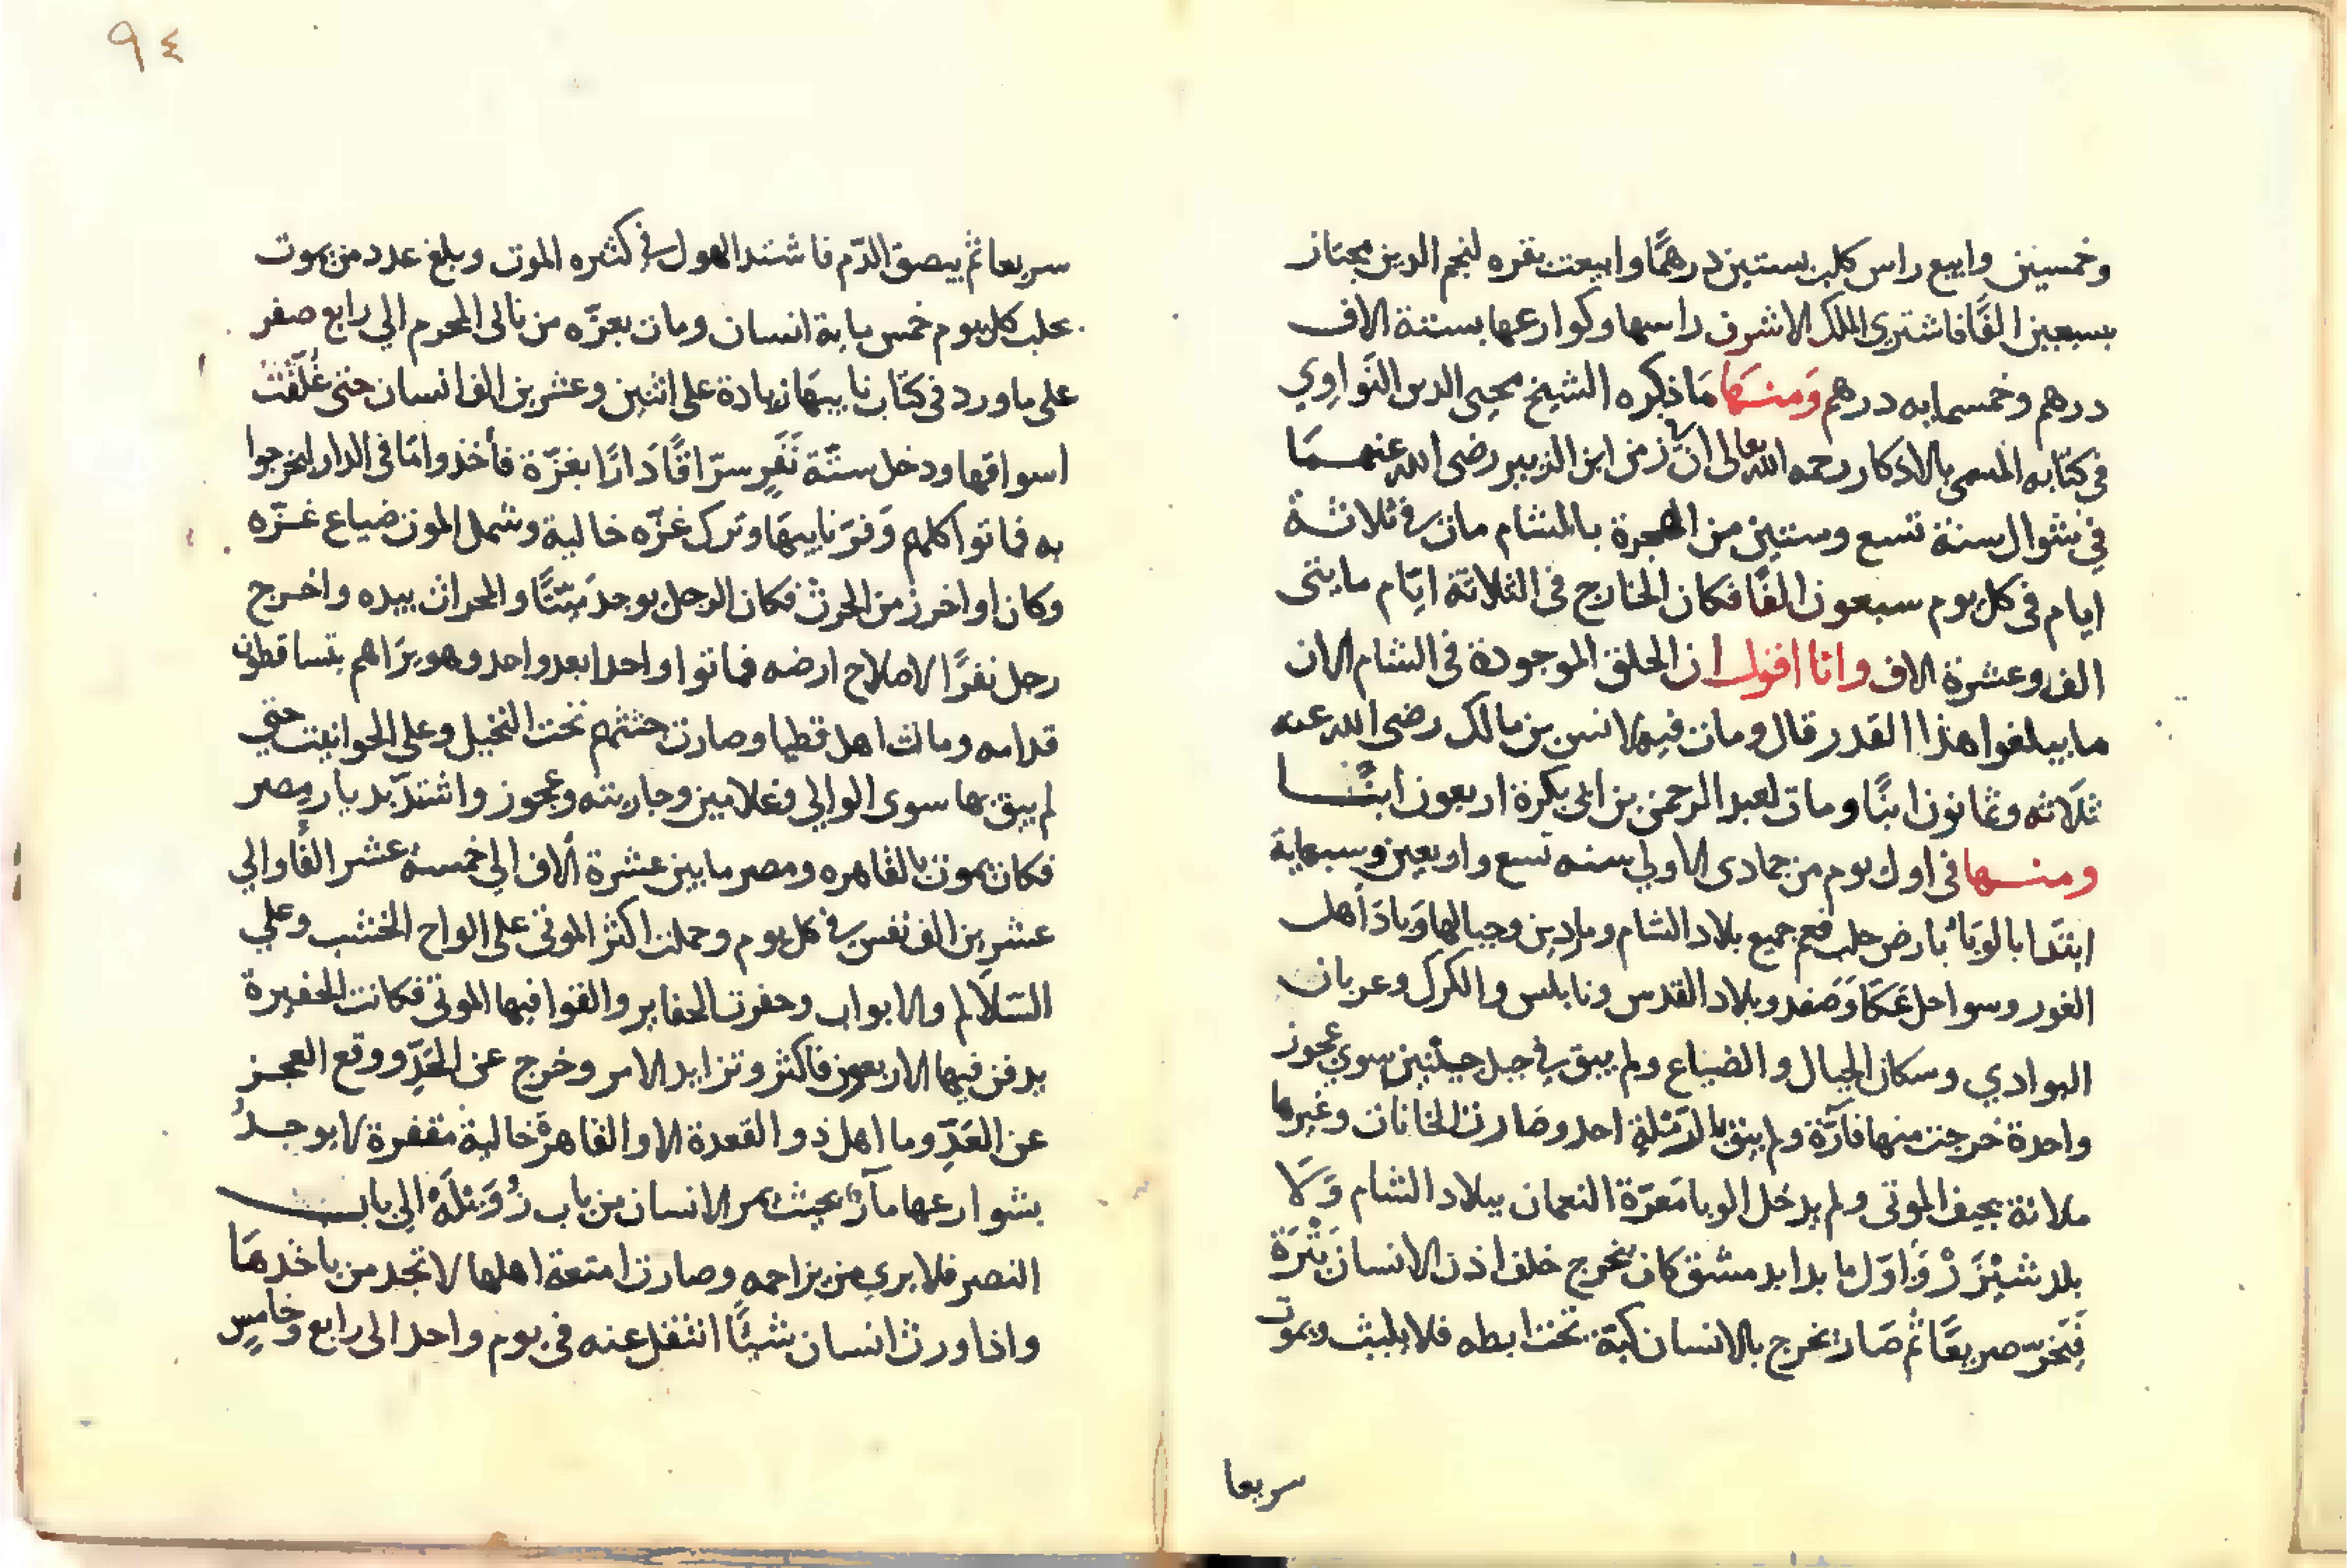 وخمسين وابيع راس كلب بستين درهمًا وابيعت بقره لنجم الدين مجتاز
بسبعين الفًا فاشترى الملك الاشرف راسها وكوارعها بستة الاف
درهم وخمسمايه درهم وَمنهَا مَا ذكره الشيخ محيى الدين النَواوِي
في كتابه المسمى بالاذكار رحمه الله تعالى ان في زمن ابن الزبير رضى الله عنهمَا
في شوال سنة تسع وستين من الهجرة بالشام مات في ثلاثة
ايام في كل يوم سبعون الفًا فكان الخارج في الثلاثة ايّام مايتى
الف وعشرة الاف وانا اقول ان الخلق الموجودة في الشام الان
ما يبلغوا هذا القدر قال ومات فيها لانس بن مالك رضى الله عنه
ثلَاثه وثمانون ابنًا ومات لعبد الرحمن بن ابى بكرة اربعون ابنًا
ومنها في اول يوم من جمادى الاولي سنه تسع واربعين وسبعماية
ابتَدا بالوبَاء بارض حلب فعم جميع بلاد الشام وماردين وجبالها وَبادَ اهل
الغور وسواحل عَكَا وَصَفد وبلاد القدس ونابلس والكرك وعربان
البوادي وسكان الجبال والضياع ولم يبق في جبل جينين سوي عجوز
واحدة خرجت منها فارّة ولم يبق بالرَمْلةِ احد وصَارت الخانات وغيرها
ملانة بجيف الموتى ولم يدخل الوبا مَعرّة النعمان ببلاد الشام وَلَا
بلد شَيْزَرْ وَاوّل ما بدا بدمشق كان يخرج خلف اذن الانسان بَثْرَة
فَيَخرّ صريعًا ثم صَار يخرج بالانسان كبة تحت ابطه فلا يلبث ويموت
سريعا
٩٤
سريعا ثم يبصق الدّم فاشتد الهول في كثره الموت وبلغ عدد من يموت
بحلب كل يوم خمس ماية انسان ومات بغزّه من ثانى المحرم الي رابع صفر
على ما ورد في كتاب نايبهَا زيادة على اثنين وعشرين الف انسان حتى غُلّقت
اسواقها ودخل ستّة نَفَرٍ سرّاقًا دَارًا بغزّة فأخذوا مَا في الدار ليخرجوا
به فماتوا كلهم وَفرّ نايبهَا وَترك غزّه خالية وشمل الموت ضياع غـزّه
وكان اواخر زمن الحرث فكان الرجل يوجد مَيّتًا والمحراث بيده واخرج
رجل نفرًا لاصلاح ارضه فماتوا واحدا بعد واحد وهو يرَاهم يتساقطون
قدامه ومات اهل قطيا وصارت جثثهم تحت النخيل وعلى الحوانيت حتى
لم يبق بها سوى الوالي وغلامين وجاريته وعجوز واشتدّ بديار مصر
فكان يموت بالقاهره ومصر ما بين عشرة ألاف الي خمسة عشر الفًا والي
عشرين الف نفس في كل يوم وحملت اكثر الموتى على الواح الخشب وعلي
السّلالم والابواب وحفرت الحفاير والقوا فيها الموتى فكانت الحفيرة
يدفن فيها الاربعون فاكثر وتزايد الامر وخرج عن الحَدِّ ووقع العجز
عن العَدِّ وما اهل ذو القعدة الا والقاهرةُ خالية مقفرة لا يوجدُ
بشوارعها مآرٌ بحيث يمر الانسان من باب زُوَيْلَهْ الي باب
النصر فلا يرى من يزاحمه وصارت امتعة اهلها لا تجد من ياخذهَا
واذا ورث انسان شيئًا انتقل عنه في يوم واحد الى رابع وخامسٍ